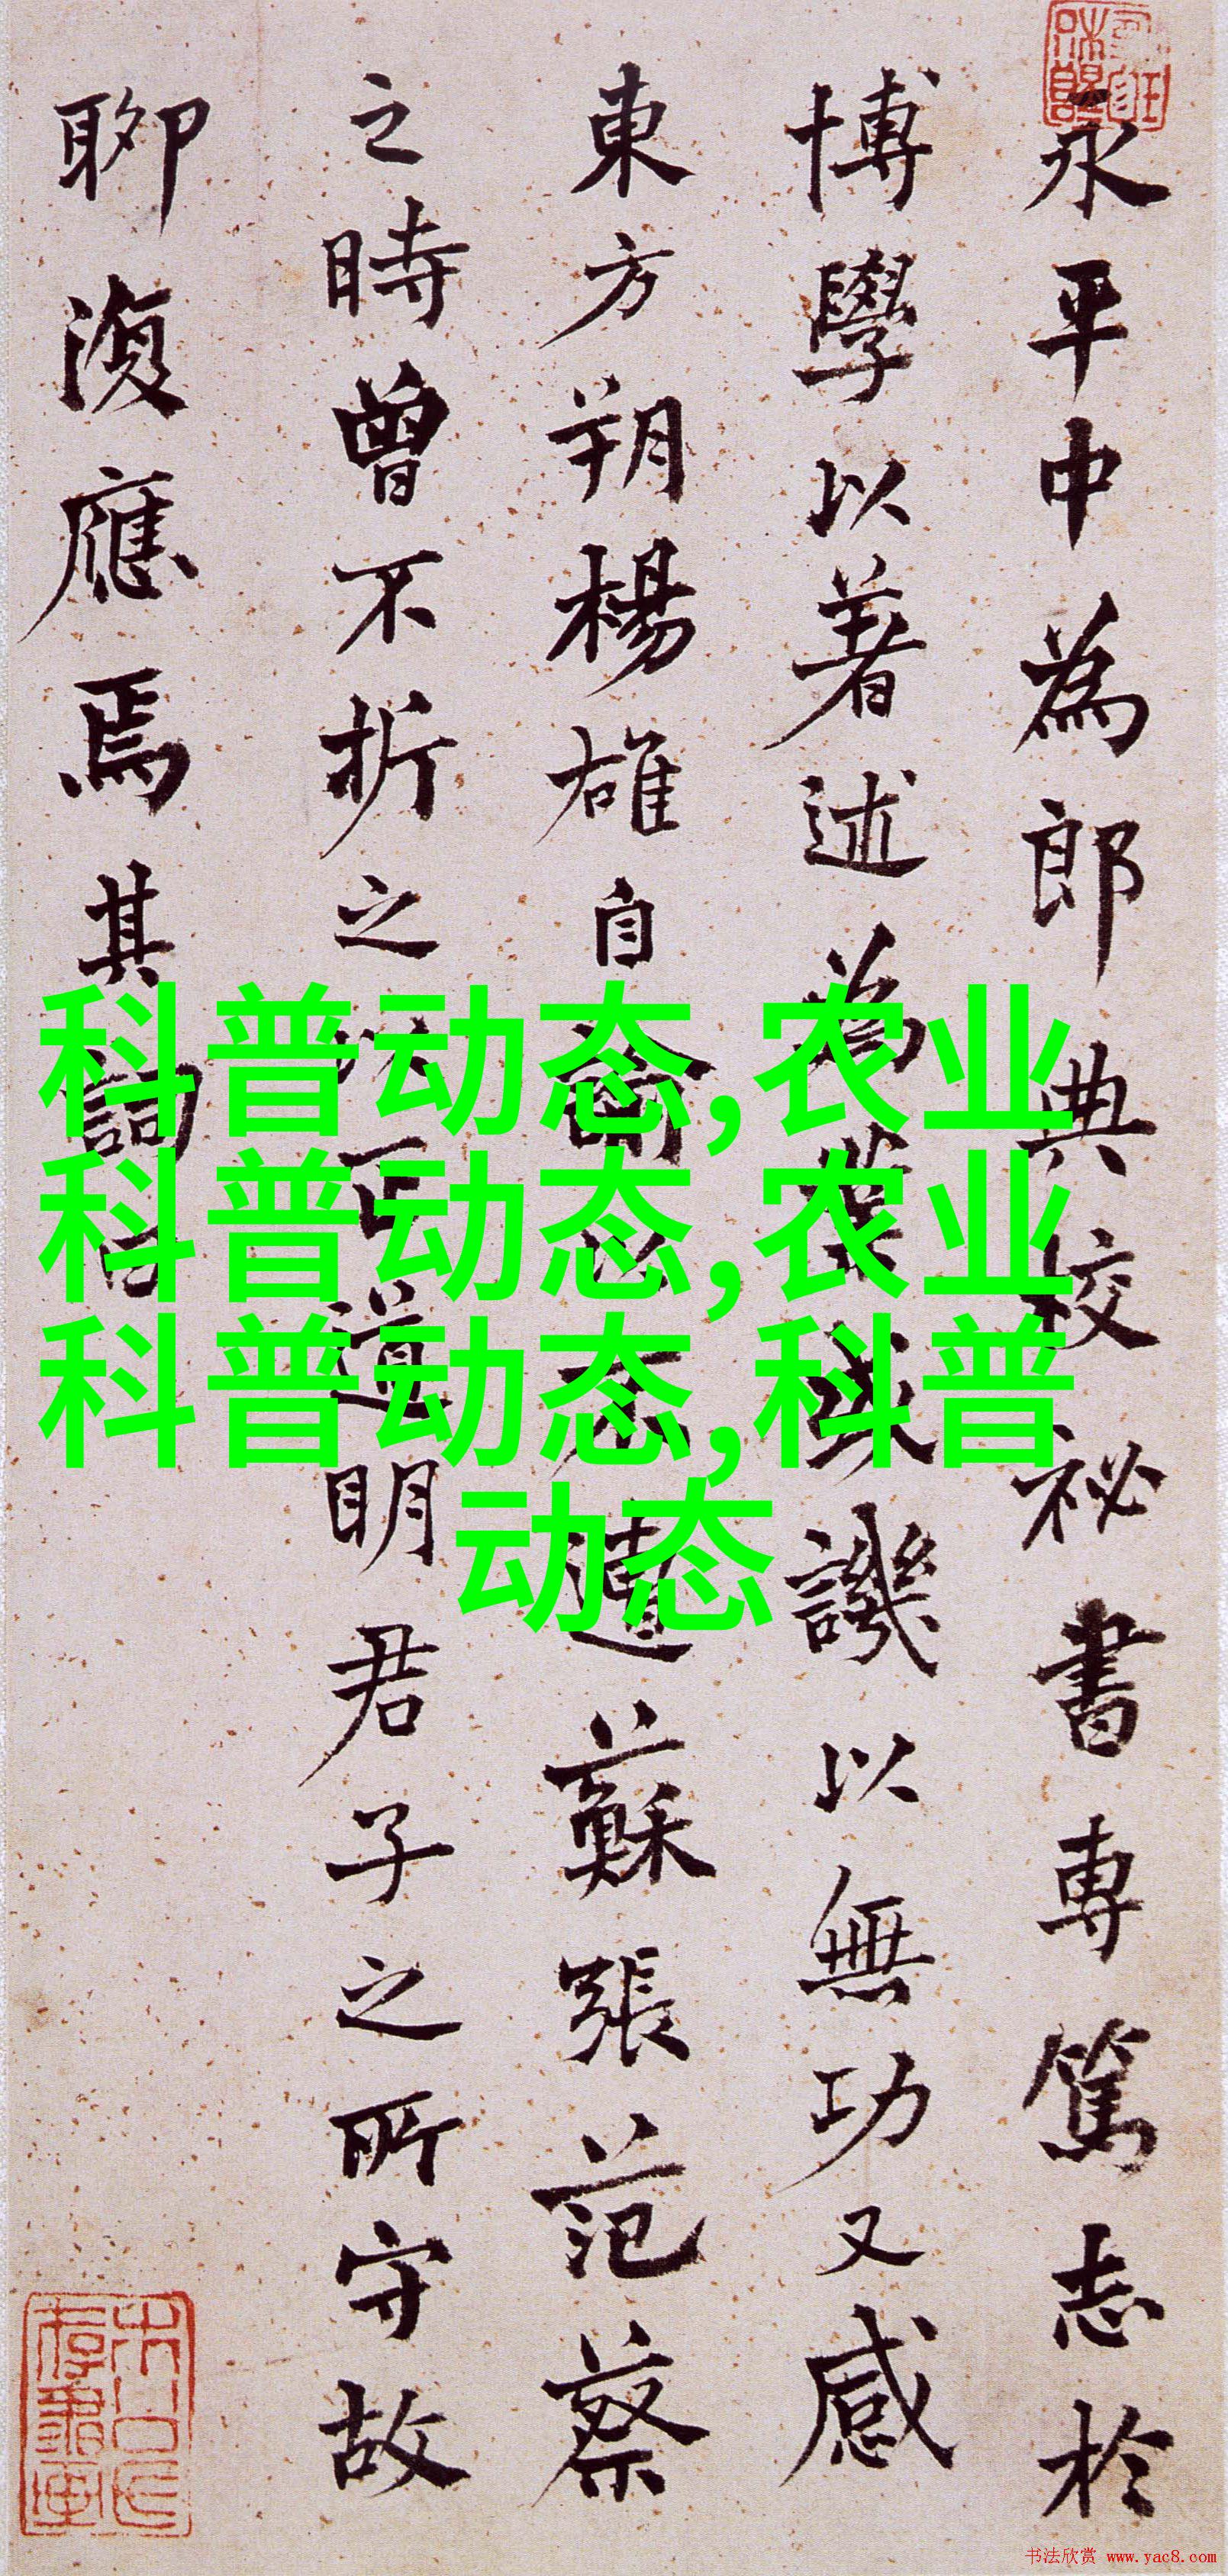 永平中為郎典校祕書專篤志於
博學以著述為業或譏以無功又感
東方朔楊雄自諭以不遭蘇張范蔡
之時曾不折之以正道明君子之所守故
聊復應焉其詞曰
科普动态,农业
科普动态,农业
科普动态,科普
动态
书法欣赏 www.yac8.com